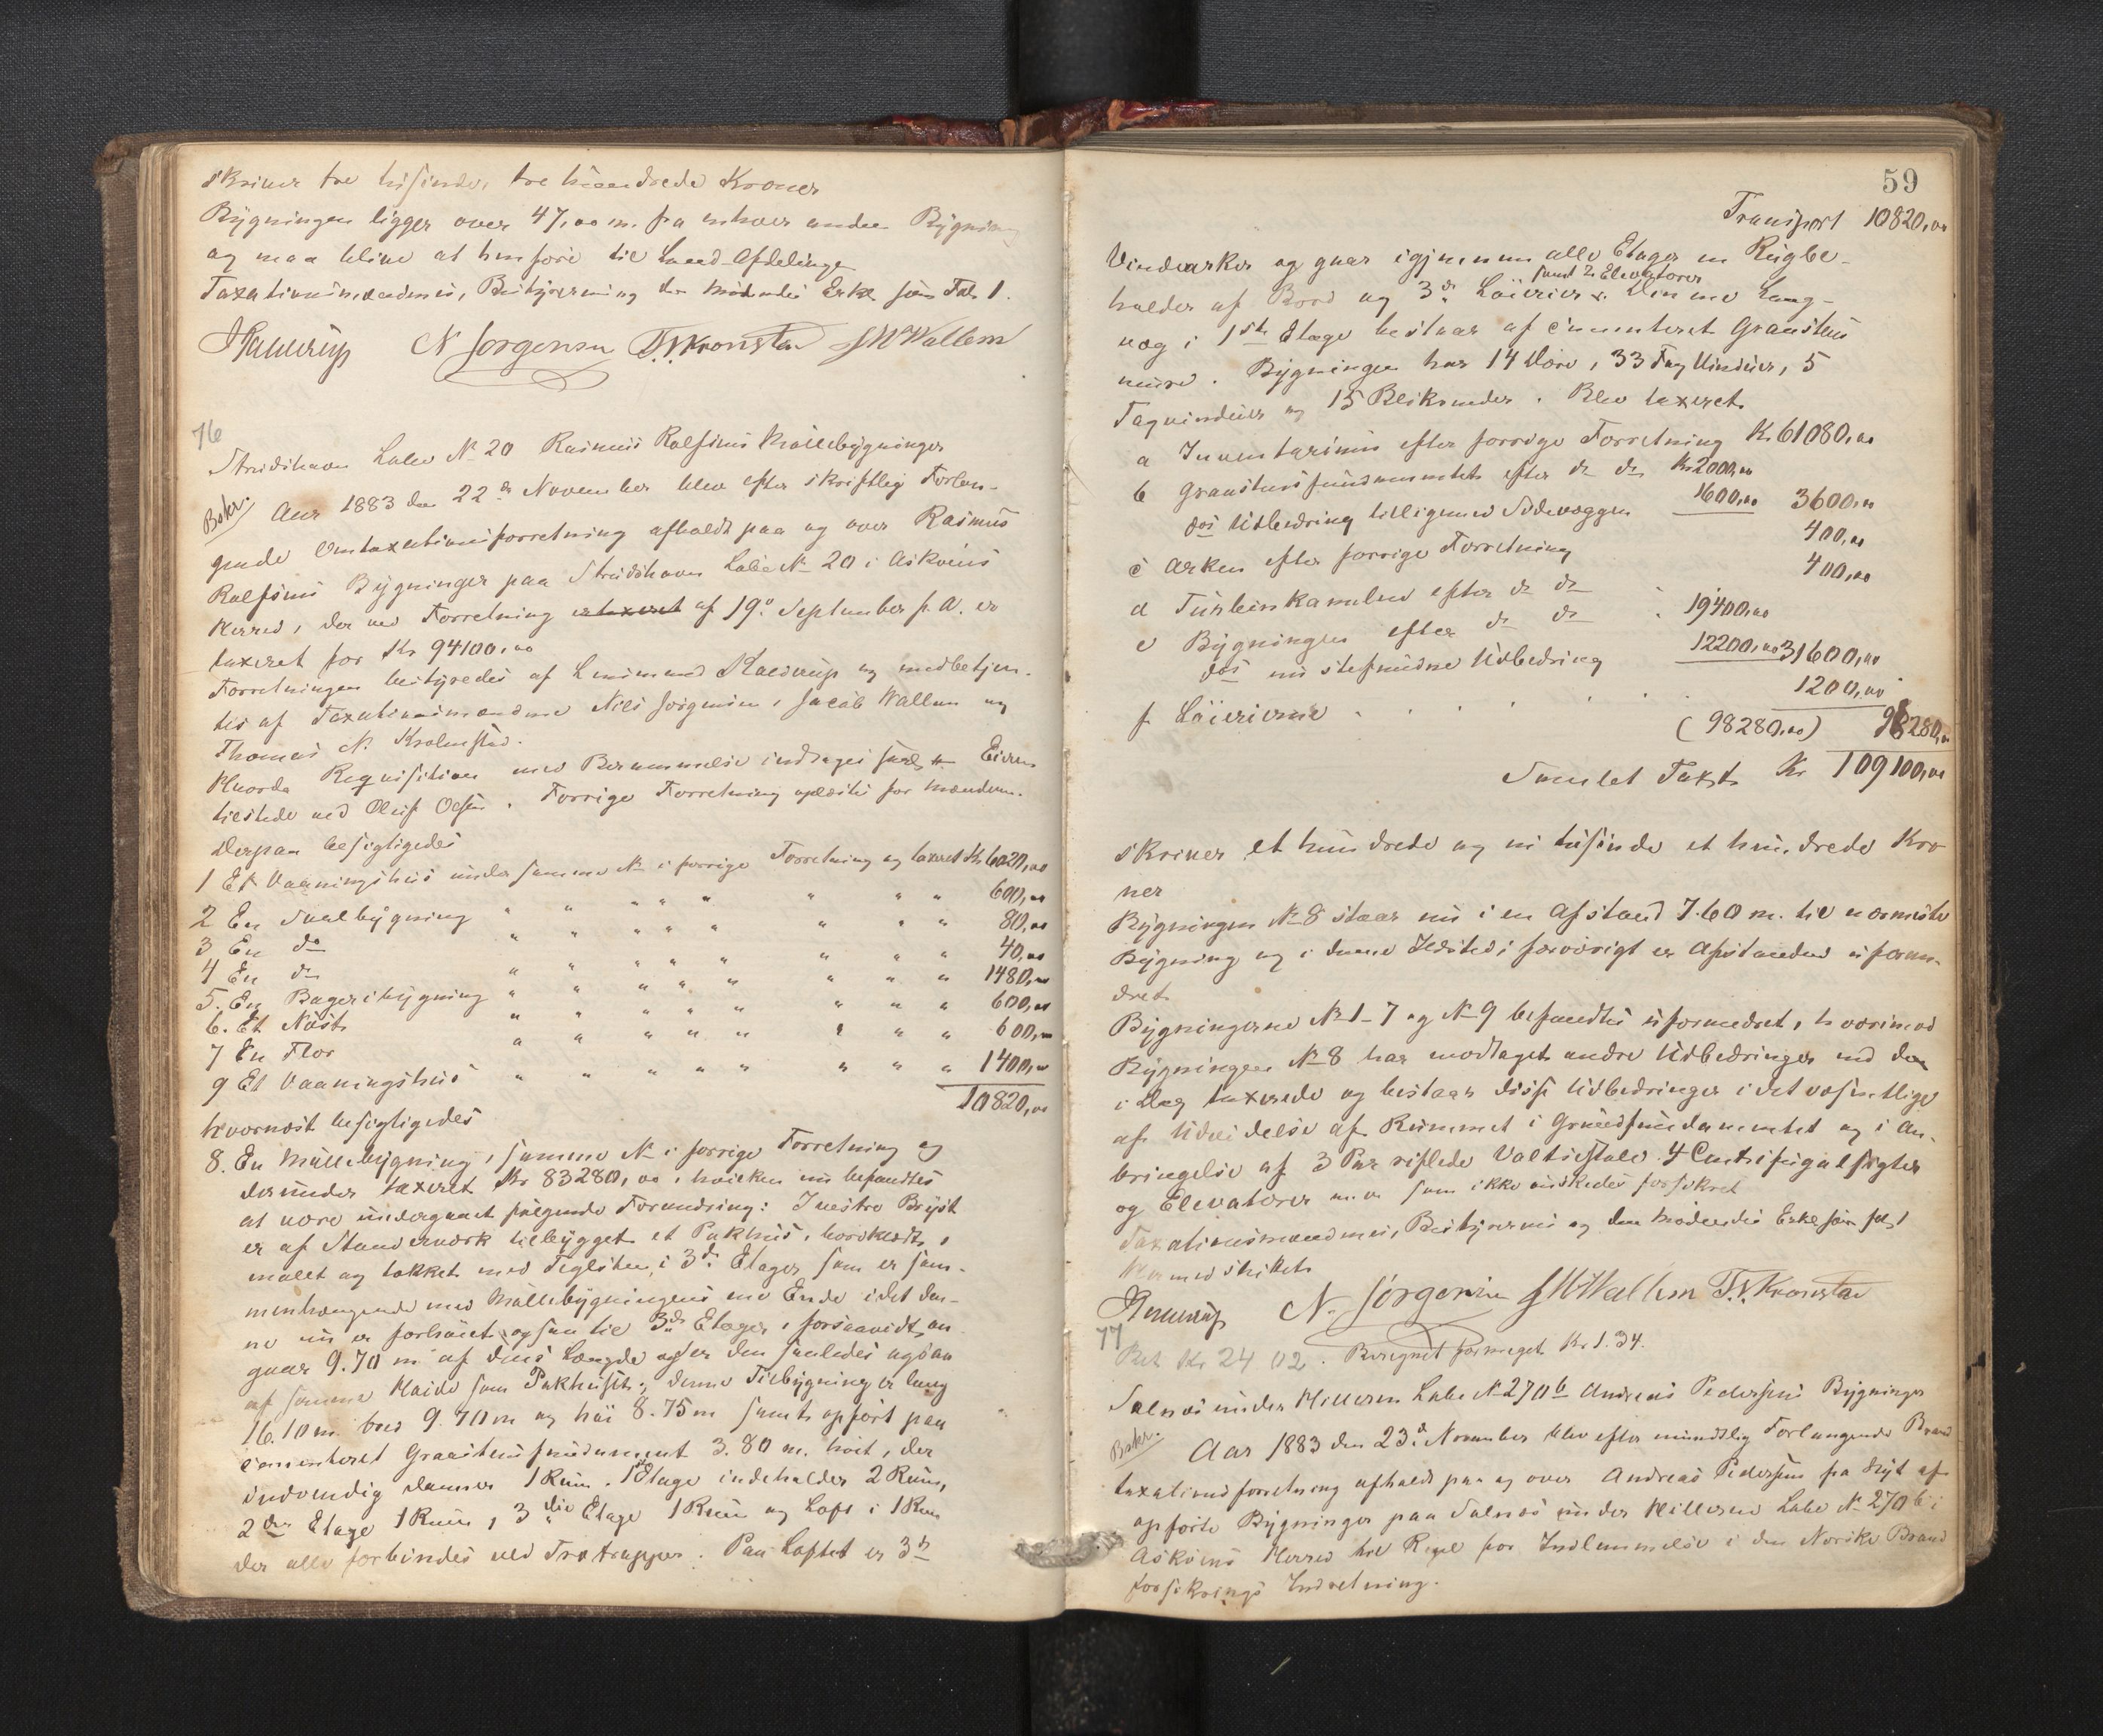 skriver tre tusinde, tre hundrede Kroner
Bygningen ligger over 47,00 m. fra enhver anden Bygning
og maa blive at henføre til Land-Afdelingen
Taxationsmændenes, Bestyrerens og den mødendes Erkl. som Fol. 1.
N Jørgensen T. N. Kronstad J M Wallem
76
Strudshavn Labe No 20 Rasmus Rolfsens Møllebygninger
Bskr.
Aar 1883 den 22de November blev efter skriftlig Forlan-
gende Omtaxationsforretning afholdt paa og over Rasmus
Rolfsens Bygninger paa Strudshavn Labe No 20 i Askøens
Herred, der ved Forretning er taxeret af 19de September f. A. er
taxeret for Kr 94100,00
Forretningen bestyredes af Lensmand og medbetjen-
tes af Taxationsmændene Nils Jørgensen, Jacob Wallem og
Thomas N. Krohnstad.
Hvorda Requisition med Berammelse indtages Eieren
tilstede ved Oluf Olsen. Forrige Forretning oplæstes for Mændene.
Derpaa besigtigedes
1 Et Vaaningshus under samme No i forrige Forretning og taxeret Kr 6020,00
2 En Svalbygning " " " " " " " " 600,00
3 En do " " " " " " " " 80,00
4 En do " " " " " " " " 40,00
5. En Bageribygning " " " " " " " " 1480,00
6. Et Nøst " " " " " " " " 600,00
7 En Flor " " " " " " " " 600,00
9 Et Vaaningshus " " " " " " " " 1400,00
10820,00
hvornæst besigtigedes
8. En Møllebygning, samme No i forrige Forretning og
derunder taxeret Kr 83280,00, hvilken nu befandtes
at være undergaaet følgende Forandring: I vestre Bryst
er af Standerværk tilbygget et Pakhus, bordklædt,
malet og tækket med Teglsten, i 3de Etager som er sam-
menhængende med Møllebygningens ene Ende idet den-
ne nu er forhøiet ogsaa til 3de Etager, forsaavidt an-
gaar 9.70 m af dens Længde og er den saaledes ogsaa
af samme Høide som Pakhuset; denne Tilbygning er lang
16.10 m. bred 9.70 m og høi 8.75 m samt opført paa
cementeret Graastensfundament 3.80 m. høit, der
indvendig danner 1 Rum. 1ste Etage indeholder 2 Rum,
2den Etage 1 Rum, 3die Etage 1 Rum og Loft i 1 Rum
der alle forbindes ved Trætrapper. Paa Loftet er 3de
59
Transport 10820,00
Vindearker og gaar igjennem alle Etager en Rugbe-
holder af Bord og 3de Løierier samt 2 Elevatorer. Denne Lang-
væg i 1ste Etage bestaar af cementeret Graastens
mure. Bygningen har 14 Døre, 33 Fag Vinduer, 5
Tagvinduer og 15 Blikrender. Blev taxeret
a Inventarium efter forrige Forretning Kr 61080,00
b Graastensfundamentet efter do do Kr 2000,00
dos Udbedring tilligemed Sidevæggen 1600,00 3600,00
c Arken efter forrige Forretning 400,00
d Turbinkammeret efter do do 400,00
e Bygningen efter do do 19400,00
dos nu stedfundne Udbedring 12200,00 31600,00
f Løierierne . . . . . 1200,00
(98280,00) 98280,00
Samlet Taxt Kr 109100,00
skriver et hundrede og ni tusinde et hundrede Kro-
ner
Bygningen No 8 staar nu i en Afstand 7.60 m. til nærmeste
Bygning og i denne Ildsteds forøvrigt er Afstanden uforan-
dret
Bygningerne No 1-7 og No 9 befandtes uforandret, hvorimod
Bygningen No 8 har modtaget andre Udbedringer end den
i Dag taxerede og bestaar disse Udbedringer i det væsentlige
af Udvidelse af Rummet i Grundfundamentet og i An-
bringelse af 3 Par riflede Valtsestole. 4 Centrifugalsigter
og Elevatorer m.v. som ikke ønskedes forsikret
Taxationsmændenes, Bestyrerens og den mødendes Erkl. som fol. 1
Hermed sluttet
N. Jørgensen J M Wallem T. N. Kronstad
77
Bet Kr 24 02. Beregnet formeget Kr 1.34.
Salnæs under Hilleren Labe No 270b Andreas Pedersens Bygninger
Bskr.
Aar 1883 den 23de November blev efter mundtlig Forlangende Brand
taxationsforretning afholdt paa og over Andreas Pedersens fra Nyt af
opførte Bygninger paa Salnæs under Hilleren Labe No 270b i
Askøens Herred til Regel for Indlemmelse i den Norske Brand
forsikrings Indretning.